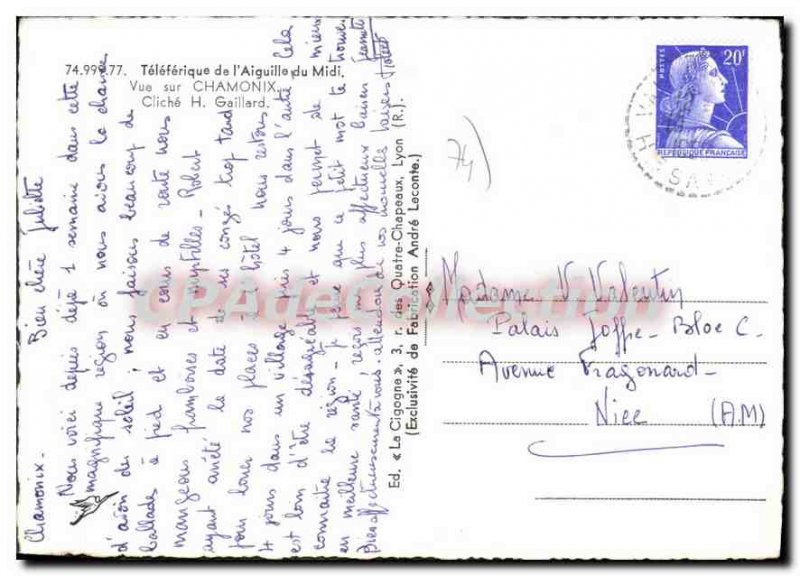 74.999.77. Téléférique de l'Aiguille du Midi.
Vue sur CHAMONIX.
Cliché H. Gaillard.
Chamonix.
Bien chère Juliette
Nous voici depuis déjà 1 semaine dans cette
magnifique région où nous avons la chance
d'avoir du soleil; nous faisons beaucoup de
ballades à pied et en cours de route nous
mangeons framboises et myrtilles - Robert
ayant arrêté la date de ses congés trop tard
pour louer nos places à l'hôtel nous restons
4 jours dans un village puis 4 jours dans l'autre, cela
est loin d'être désagréable et nous permet de mieux
connaître la région - Je pense que ce petit mot te trouvera
en meilleure santé, reçois mes plus affectueux baisers
Bien affectueusement à vous. attendons de vos nouvelles baisers
Ed. « La Cigogne », 3, r. des Quatre-Chapeaux, Lyon (R.).
(Exclusivité de Fabrication André Leconte.)
74)
POSTES
20F
REPUBLIQUE FRANÇAISE
Madame V. Valentin
Palais Joffre - Bloc C.
Avenue Fragonard -
Nice (A.M)
CPAdeCollection